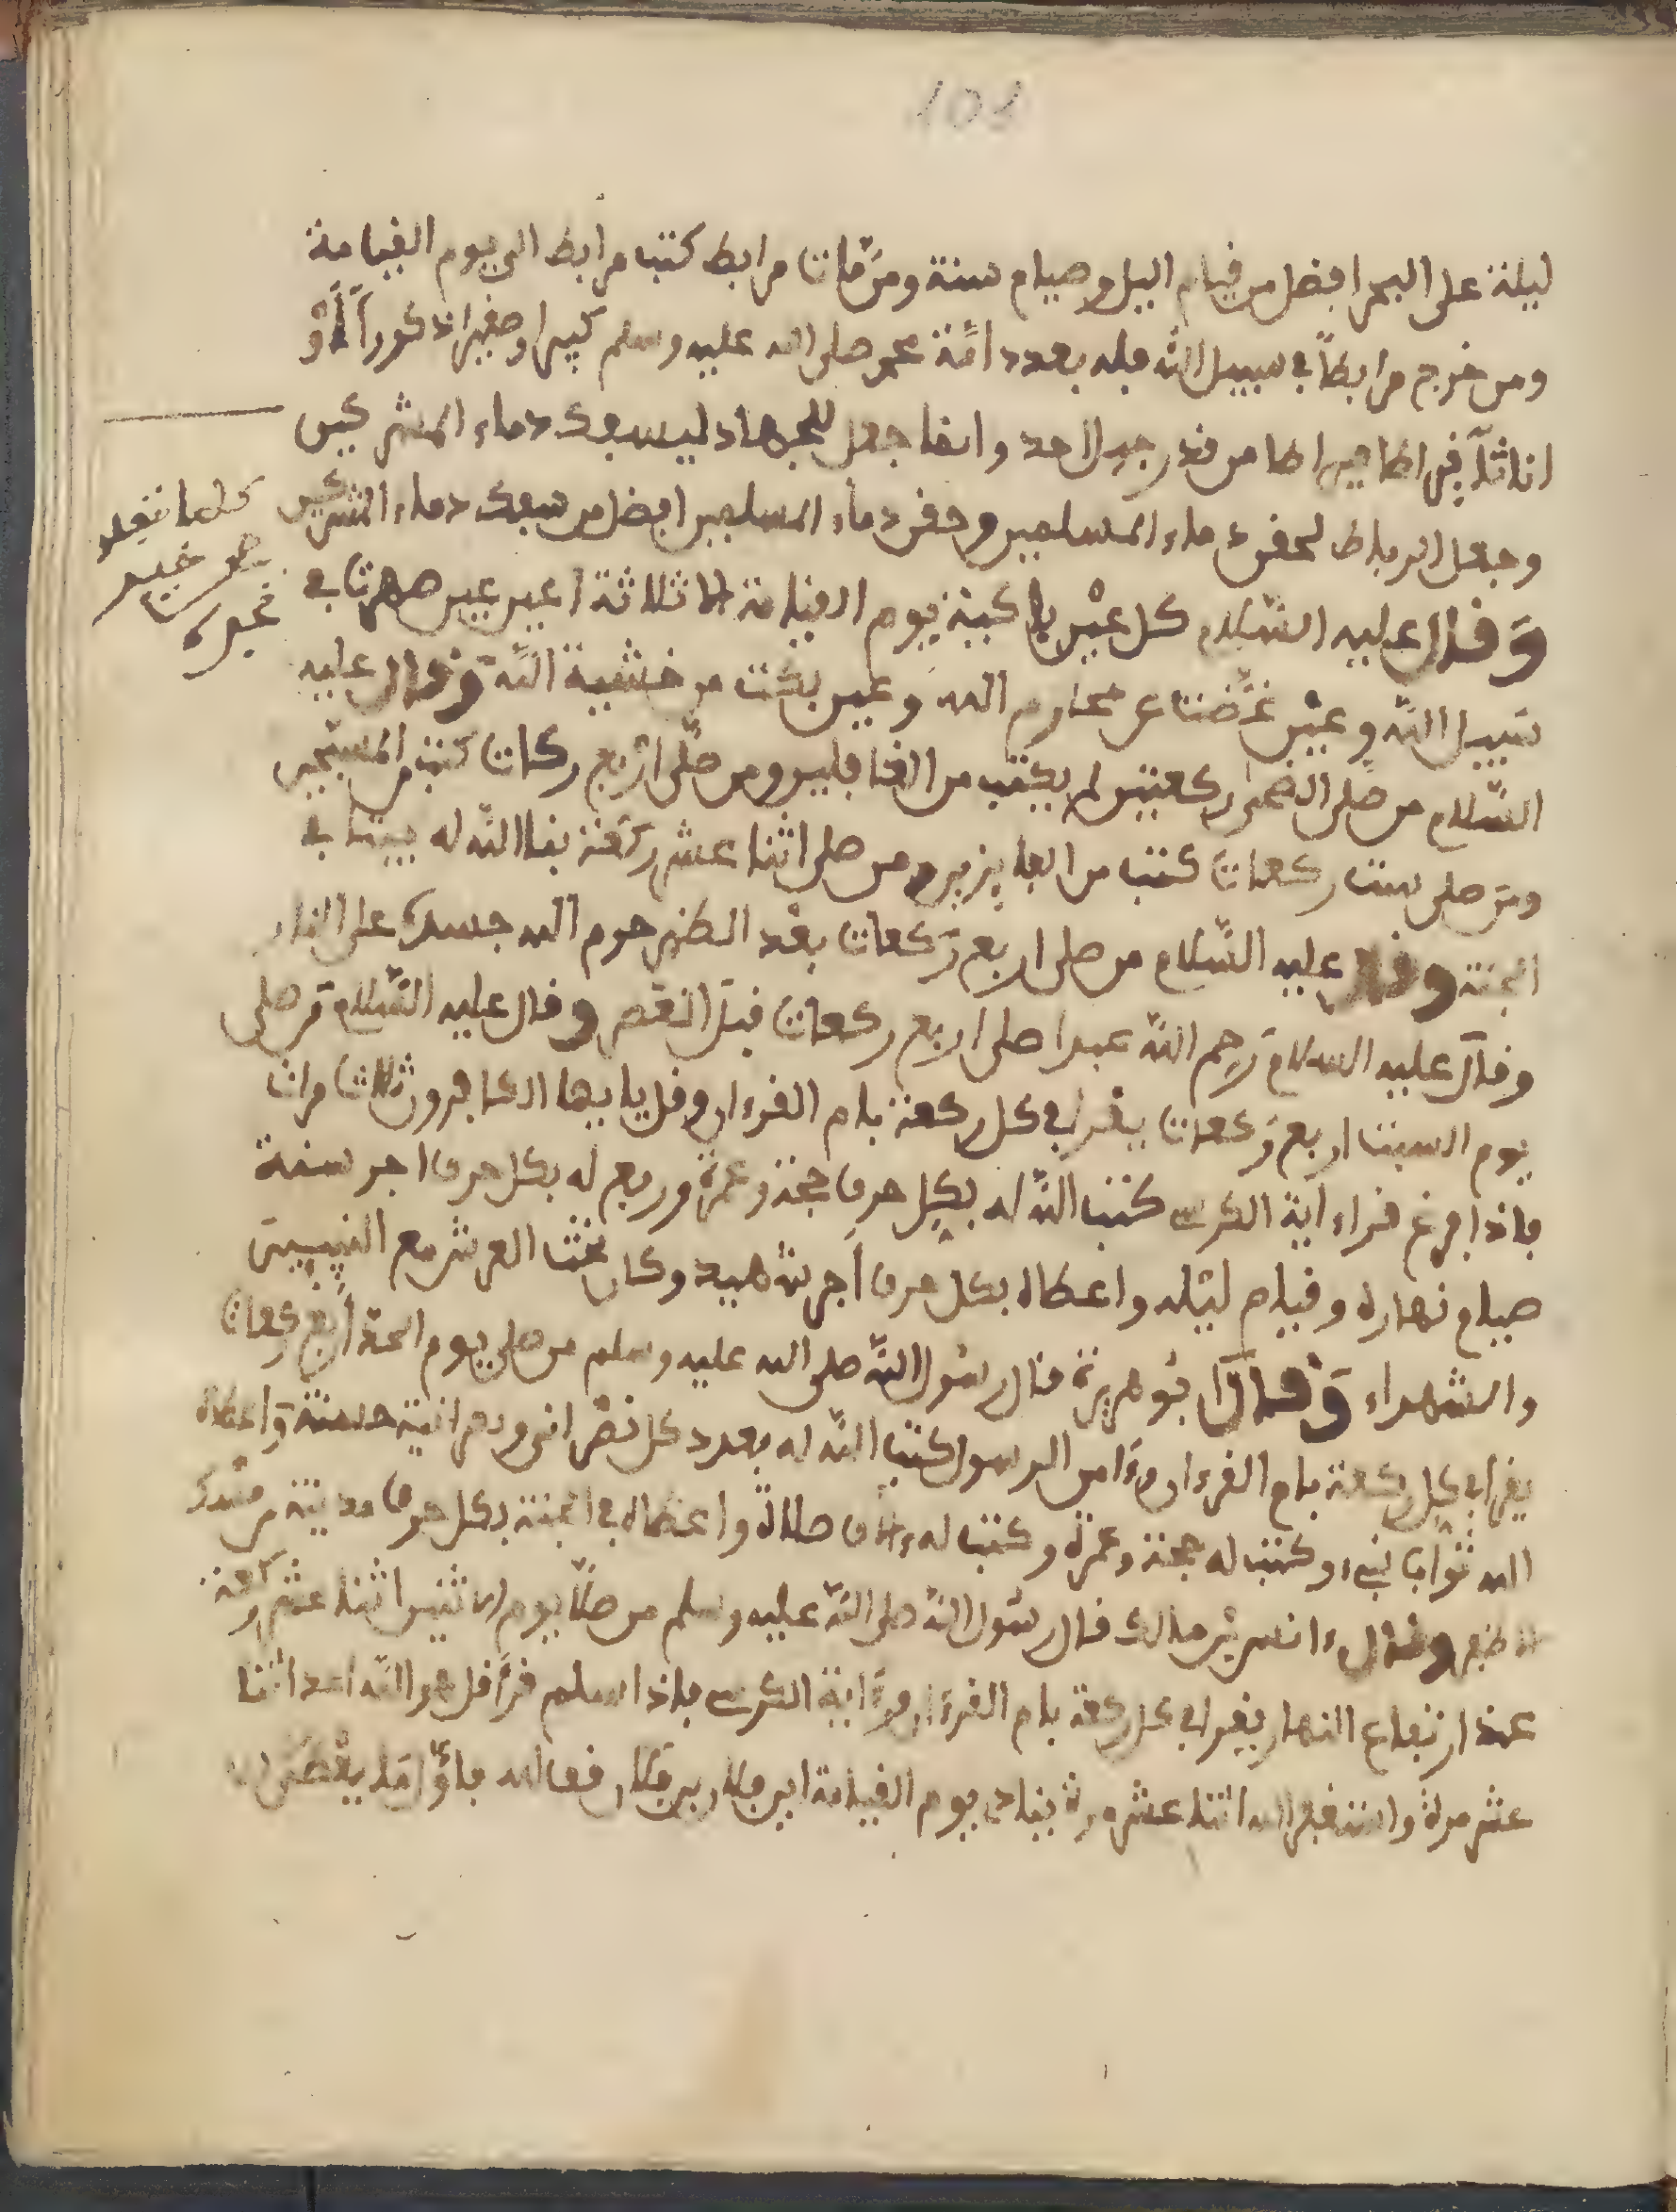 101
ليلة على البحر افضل من قيام اليل وصيام سنة ومن مات مرابط كتب مرابط الى يوم القيامة
ومن خرج مرابطا في سبيل الله فله بعدد امة محمد صلى الله عليه وسلم كبيرا وصغيرا ذكورا او
اناثا قيراطا قيراطا من قدر جبل احد وانما جعل للجهاد ليسفك دماء المشركين
وجعل الرباط لحقن دماء المسلمين وحقن دماء المسلمين افضل من سفك دماء المشركين
وقال عليه السلام كل عين باكية يوم القيامة الا ثلاثة اعين عين سهرت في
سبيل الله وعين غضت عن محارم الله وعين بكت من خشية الله وقال عليه
السلام من صلى الضحى ركعتين لم يكتب من الغافلين ومن صلى اربع ركعات كتب من المسبحين
ومن صلى ست ركعات كتب من الفايزين ومن صلى اثنا عشر ركعة بنا الله له بيتا في
الجنة وقال عليه السلام من صلى اربع ركعات بعد الظهر حرم الله جسده على النار
وقال عليه السلام رحم الله عبدا صلى اربع ركعات قبل العصر وقال عليه السلام من صلى
يوم السبت اربع ركعات يقرا في كل ركعة بام القرءان وقل يا يها الكافرون ثلاث مرات
فاذا فرغ قراء اية الكرسي كتب الله له بكل حرف حجة وعمرة ورفع له بكل حرف اجر سنة
صيام نهاره وقيام ليله واعطاه بكل حرف اجر شهيد وكان تحت العرش مع النبيين
والشهداء وقال ابو هريرة قال رسول الله صلى الله عليه وسلم من صلى يوم الحد اربع ركعات
يقرا في كل ركعة بام القرءان وءامن الرسول كتب الله له بعدد كل نصراني ونصرانية حسنة واعطاه
الله ثواب نبيء وكتب له حجة وعمرة وكتب له الاف صلاة واعطاه في الجنة بكل حرف مدينة من مسك
وقال انس بن مالك قال رسول الله صلى الله عليه وسلم من صلا يوم الاثنين اثنا عشر ركعة
عند ارتفاع النهار يقرا في كل ركعة بام القرءان وءاية الكرسي فاذا سلم قرا قل هو الله احد اثنا
عشر مرة واستغفر الله اثنا عشر مرة ينادى يوم القيامة اين فلان بن فلان فاول ما يعطى
كلما تقدم
هو خير من
غيره